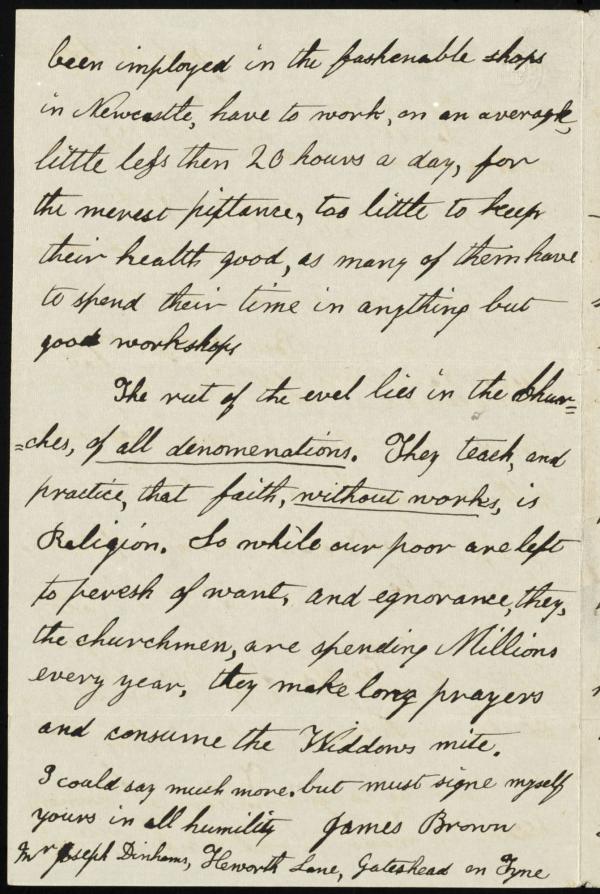 been imployed in the fashenable shops
in Newcastle, have to work, on an average,
little less then 20 hours a day, for
the merest pittance, too little to keep
their health good, as many of them have
to spend their time in anything but
good workshops
The rut of the evel lies in the Chur=
=ches, of all denomenations. They teach, and
practice, that faith, without works, is
Religion. So while our poor are left
to peresh of want, and egnorance, they,
the churchmen, are spending Millions
every year, they make long prayers
and consume the Widdows mite.
I could say much more, but must signe myself
yours in all humility James Brown
Mr Joseph Dinhams, Heworth Lane, Gateshead on Tyne